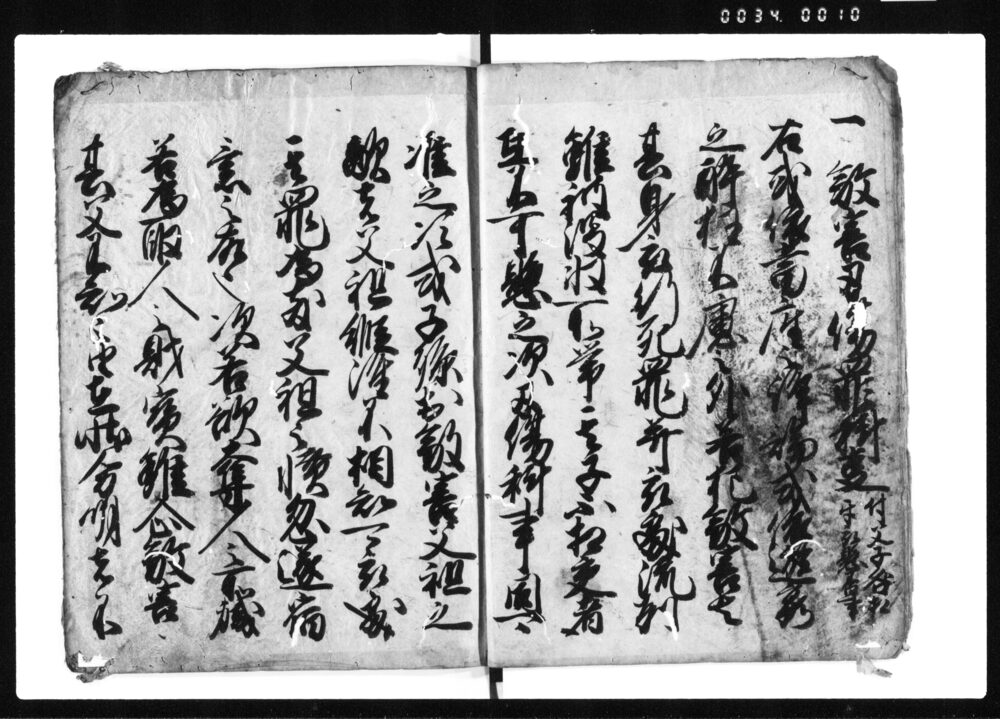 一 殺害刃傷罪科事 付父子咎相
互被懸否事
右或依当座之諍論或依遊宴
之酔狂不慮之外若犯殺害者
其身被行死罪并被処流刑
雖被没収所帯其子不相交者
互不可懸之次刃傷科事同
准之次或子孫於殺害父祖之
敵者父祖縦雖不相知可被処
其罪為散父祖之憤忽遂宿
意之故也次若欲奪人之所職
若為取人之財宝雖企殺害
其父不知之由在状分明者不